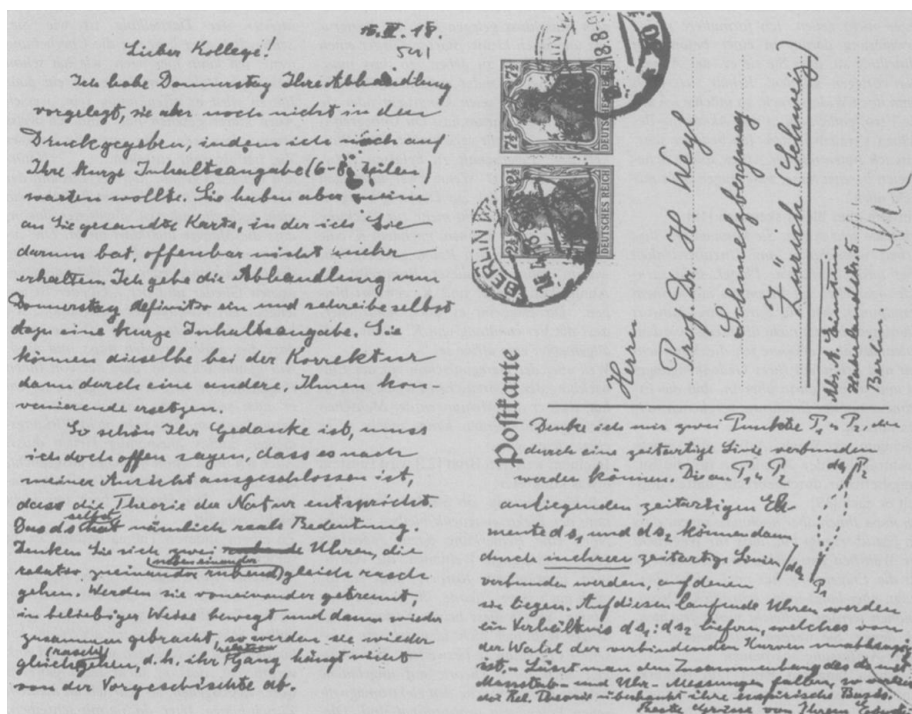 15. IV. 18.
Lieber Kollege!
Ich habe Donnerstag Ihre Abhandlung
vorgelegt, sie aber noch nicht in den
Druck gegeben, indem ich noch auf
Ihre kurze Inhaltsangabe (6-8 Zeilen)
warten wollte. Sie haben aber meine
an Sie gesandte Karte, in der ich Sie
darum bat, offenbar nicht mehr
erhalten. Ich gebe die Abhandlung nun
Donnerstag definitiv ein und schreibe selbst
dazu eine kurze Inhaltsangabe. Sie
können dieselbe bei der Korrektur
dann durch eine andere, Ihnen kon-
venierende ersetzen.
So schön Ihr Gedanke ist, muss
ich doch offen sagen, dass es nach
meiner Ansicht ausgeschlossen ist,
dass die Theorie der Natur entspricht.
Das ds selbst hat nämlich reale Bedeutung.
Denken Sie sich zwei Uhren, die
relativ zueinander ruhend nebeneinander gleich rasch
gehen. Werden sie voneinander getrennt,
in beliebiger Weise bewegt und dann wieder
zusammen gebracht, so werden sie wieder
gleich (rasch) gehen, d. h. ihr relativer Gang hängt nicht
von der Vorgeschichte ab.
7½ 7½
DEUTSCHES REICH
2½ 2½
DEUTSCHES REICH
BERLIN W
Postkarte
Herrn
Prof. Dr. H. Weyl
Schmelzbergweg
Zürich (Schweiz)
Abs. A. Einstein
Haberlandstr. 5
Berlin.
Denke ich mir zwei Punkte P₁ u. P₂, die
durch eine zeitartige Linie verbunden
werden können. Die an P₁ u. P₂
anliegenden zeitartigen Ele-
mente ds₁ und ds₂ können dann
durch mehrere zeitartige Linien
verbunden werden, auf denen
sie liegen. Auf diesen laufende Uhren werden
ein Verhältnis ds₁ : ds₂ liefern, welches von
der Wahl der verbindenden Kurven unabhängig
ist. – Lässt man den Zusammenhang des ds mit
Massstab- und Uhr-Messungen fallen, so verliert
die Rel. Theorie überhaupt ihre empirische Basis.
Beste Grüsse von Ihrem Einstein
ds₂ P₂
ds₁
P₁